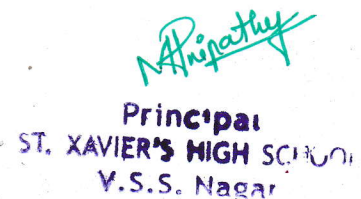 Principal
ST. XAVIER'S HIGH SCHOOL
V.S.S. Nagar